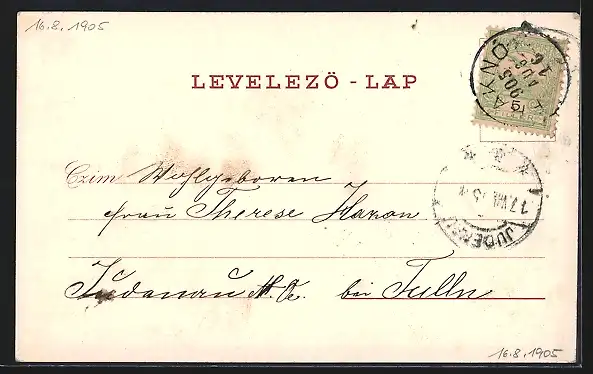 16.8.1905
LEVELEZÖ - LAP
AKNÓ
905
AUG
16
5
Czim Wohlgeboren
Frau Therese Haxon
17.VIII. 05
JUDENAU
Judenau N. Ö. bei Tulln
16.8.1905